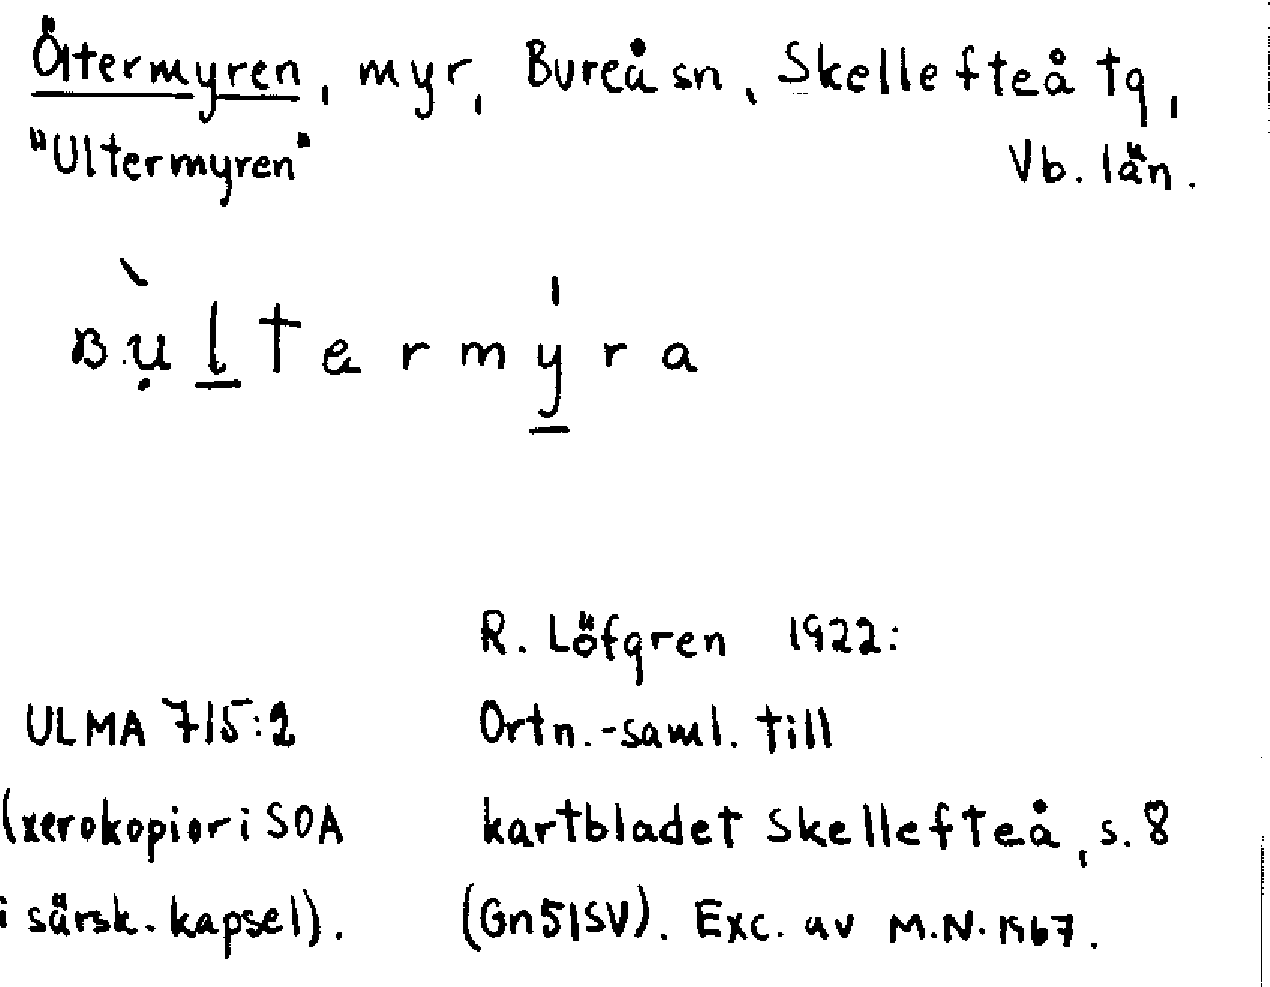 Öltermyren, myr, Bureå sn, Skellefteå tg,
"Ultermyren" Vb. län.
R. Löfgren 1922:
ULMA 715:2 Ortn.-saml. till
(xerokopior i SOA kartbladet Skellefteå, s. 8
i särsk. kapsel). (Gn51SV). Exc. av M.N. 1967.